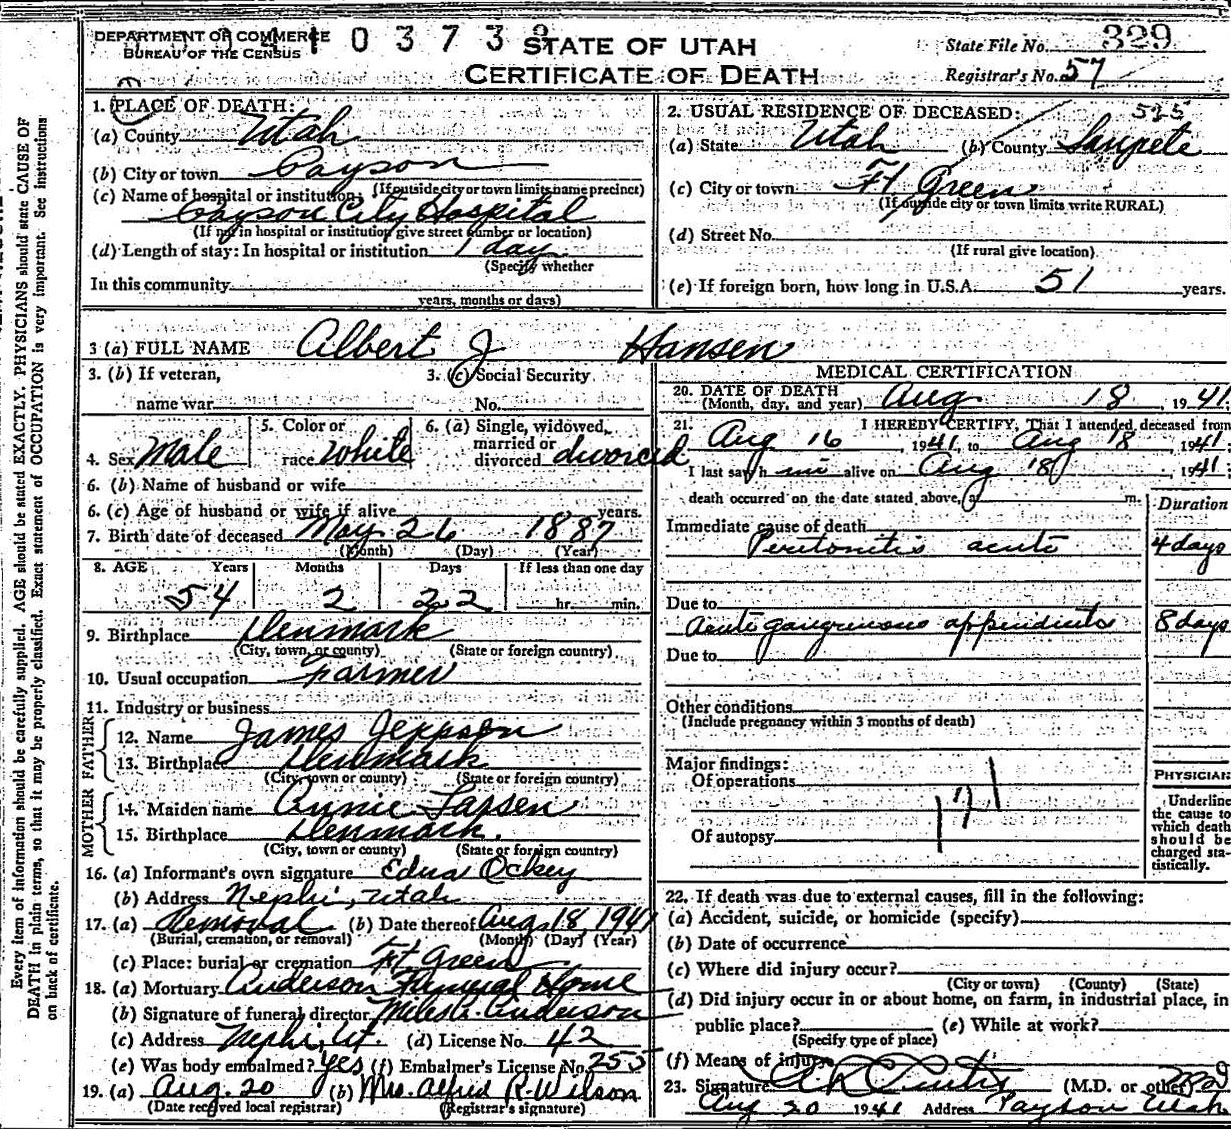 DEPARTMENT OF COMMERCE
BUREAU OF THE CENSUS
1 0 3 7 3
STATE OF UTAH
CERTIFICATE OF DEATH
State File No. 329
Registrar's No. 57
1. PLACE OF DEATH:
(a) County Utah
(b) City or town Payson
(If outside city or town limits name precinct)
(c) Name of hospital or institution:
Payson City Hospital
(If not in hospital or institution give street number or location)
(d) Length of stay: In hospital or institution 1 day
(Specify whether
In this community
years, months or days)
2. USUAL RESIDENCE OF DECEASED: 525
(a) State Utah (b) County Sanpete
(c) City or town Ft Green
(If outside city or town limits write RURAL)
(d) Street No.
(If rural give location)
(e) If foreign born, how long in U.S.A. 51 years.
3 (a) FULL NAME Albert J Hansen
3. (b) If veteran,
name war
3. (c) Social Security
No.
4. Sex Male
5. Color or
race White
6. (a) Single, widowed,
married or
divorced divorced
6. (b) Name of husband or wife
6. (c) Age of husband or wife if alive years.
7. Birth date of deceased May 26 1887
(Month) (Day) (Year)
8. AGE Years Months Days If less than one day
54 2 22 hr. min.
9. Birthplace Denmark
(City, town, or county) (State or foreign country)
10. Usual occupation Farmer
11. Industry or business
FATHER
12. Name James Jeppson
13. Birthplace Denmark
(City, town or county) (State or foreign country)
MOTHER
14. Maiden name Annie Larsen
15. Birthplace Denmark.
(City, town or county) (State or foreign country)
16. (a) Informant's own signature Edna Ockey
(b) Address Nephi, Utah
17. (a) Removal (b) Date thereof Aug 18, 1941
(Burial, cremation, or removal) (Month) (Day) (Year)
(c) Place: burial or cremation Ft Green
18. (a) Mortuary Anderson Funeral Home
(b) Signature of funeral director Miles A. Anderson
(c) Address Nephi, Ut. (d) License No. 42
(e) Was body embalmed? Yes (f) Embalmer's License No. 255
19. (a) Aug. 20 (b) Mrs. Alfred R. Wilson
(Date received local registrar) (Registrar's signature)
MEDICAL CERTIFICATION
20. DATE OF DEATH
(Month, day, and year) Aug 18, 1941
21. I HEREBY CERTIFY, That I attended deceased from
Aug 16, 1941, to Aug 18, 1941.
I last saw him alive on Aug 18, 1941
death occurred on the date stated above, a m.
Duration
Immediate cause of death
Peritonitis acute 4 days
Due to
Acute gangrenous appendicitis 8 days
Due to
Other conditions
(Include pregnancy within 3 months of death)
Major findings:
Of operations
121
Of autopsy
PHYSICIAN
Underline
the cause to
which death
should be
charged sta-
tistically.
22. If death was due to external causes, fill in the following:
(a) Accident, suicide, or homicide (specify)
(b) Date of occurrence
(c) Where did injury occur?
(City or town) (County) (State)
(d) Did injury occur in or about home, on farm, in industrial place, in
public place? (e) While at work?
(Specify type of place)
(f) Means of injury
23. Signature (M.D. or other) MD
Aug 20 1941 Address Payson Utah
Every item of information should be carefully supplied. AGE should be stated EXACTLY. PHYSICIANS should state CAUSE OF
DEATH in plain terms, so that it may be properly classified. Exact statement of OCCUPATION is very important. See instructions
on back of certificate.